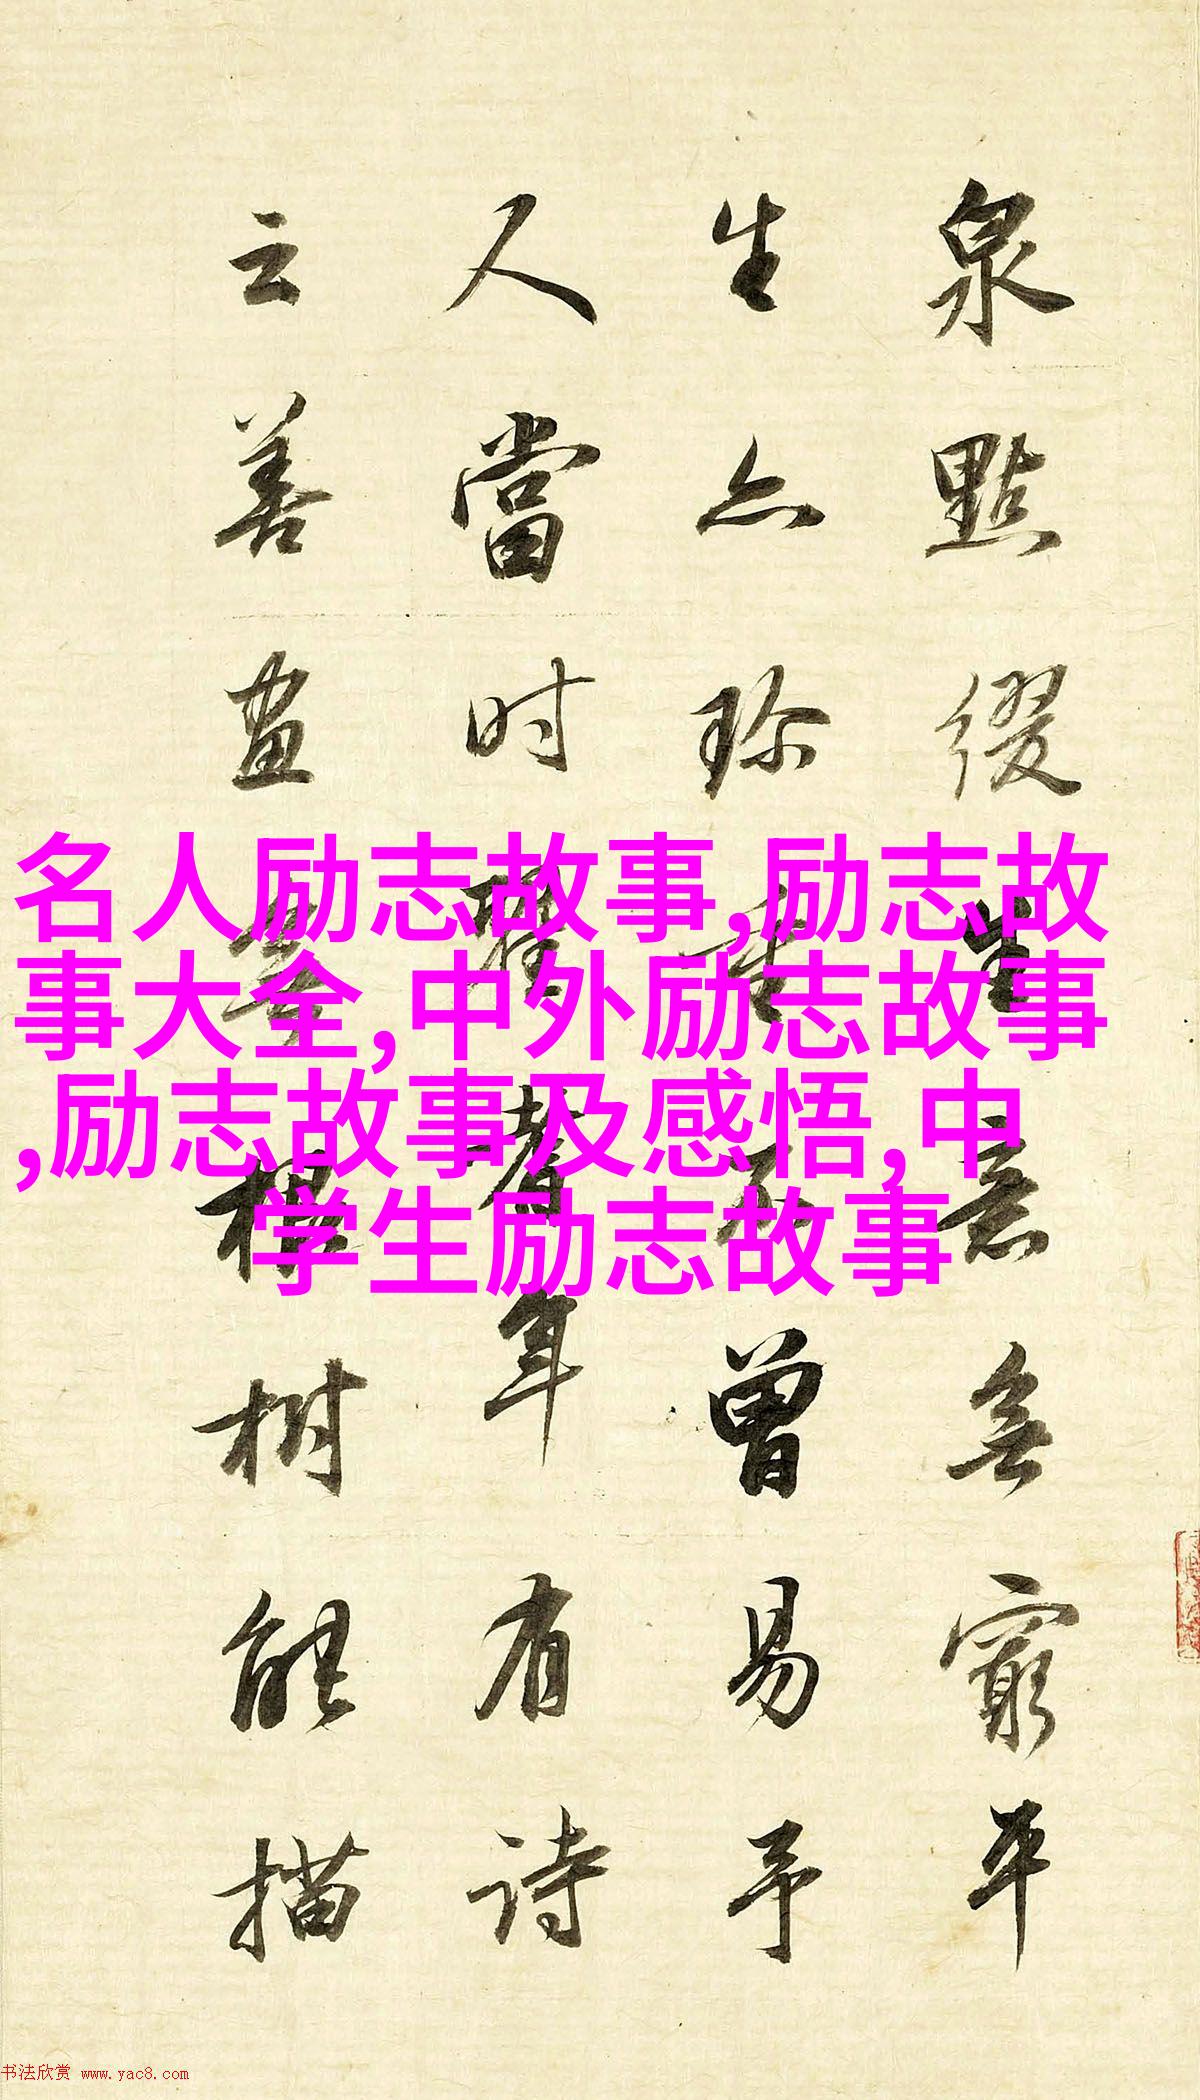 泉點缀生意無窮平
生亦珍重不曾易予
人當时耆年有诗
云善畫樹能描
名人励志故事,励志故
事大全,中外励志故事
,励志故事及感悟,中
学生励志故事
书法欣赏 www.yac8.com